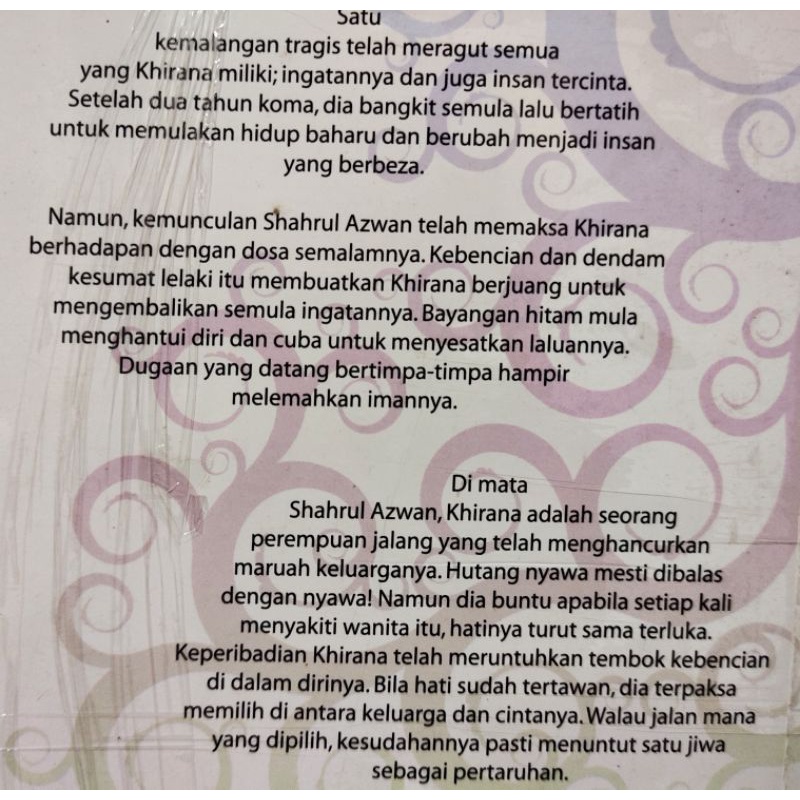 Satu
kemalangan tragis telah meragut semua
yang Khirana miliki; ingatannya dan juga insan tercinta.
Setelah dua tahun koma, dia bangkit semula lalu bertatih
untuk memulakan hidup baharu dan berubah menjadi insan
yang berbeza.
Namun, kemunculan Shahrul Azwan telah memaksa Khirana
berhadapan dengan dosa semalamnya. Kebencian dan dendam
kesumat lelaki itu membuatkan Khirana berjuang untuk
mengembalikan semula ingatannya. Bayangan hitam mula
menghantui diri dan cuba untuk menyesatkan laluannya.
Dugaan yang datang bertimpa-timpa hampir
melemahkan imannya.
Di mata
Shahrul Azwan, Khirana adalah seorang
perempuan jalang yang telah menghancurkan
maruah keluarganya. Hutang nyawa mesti dibalas
dengan nyawa! Namun dia buntu apabila setiap kali
menyakiti wanita itu, hatinya turut sama terluka.
Keperibadian Khirana telah meruntuhkan tembok kebencian
di dalam dirinya. Bila hati sudah tertawan, dia terpaksa
memilih di antara keluarga dan cintanya. Walau jalan mana
yang dipilih, kesudahannya pasti menuntut satu jiwa
sebagai pertaruhan.